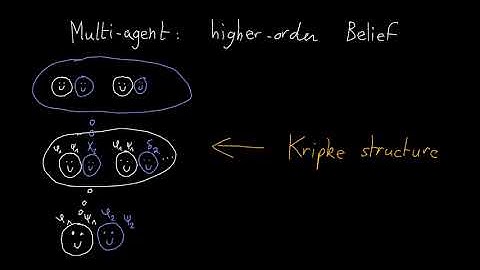 Multi-agent: higher-order Belief
φ₁ ψ₁ χ₂ φ₁ ψ₁ δ₂ ...
← Kripke structure
φ₁ ψ₁ φ₂ ψ₂